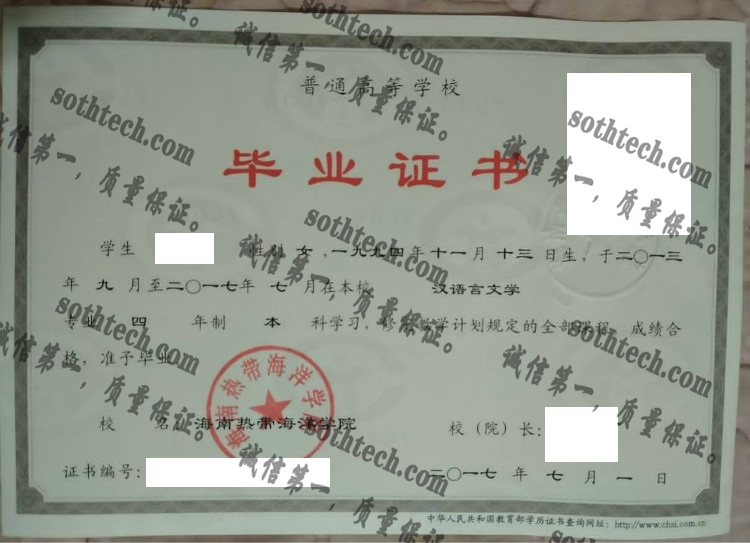 普通高等学校
毕业证书
学生 性别 女 ，一九九四年 十一月 十三 日生，于二〇一三
年 九 月至二〇一七年 七 月在本校 汉语言文学
专业 四 年制 本 科学习，修完教学计划规定的全部课程，成绩合
格，准予毕业。
海南热带海洋学院
校 名：海南热带海洋学院 校（院）长：
证书编号： 二〇一七 年 七 月 一 日
中华人民共和国教育部学历证书查询网址：http://www.chsi.com.cn
sothtech.com
诚信第一，质量保证。
sothtech.com
诚信第一，质量保证。
sothtech.com
诚信第一，质量保证。
sothtech.com
诚信第一，质量保证。
sothtech.com
诚信第一，质量保证。
sothtech.com
诚信第一，质量保证。
sothtech.com
诚信第一，质量保证。